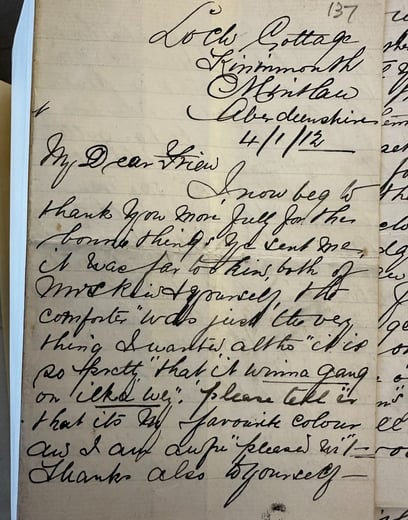 137
Loch Cottage
Kininmonth
Mintlaw
Aberdeenshire
4/1/12
My Dear Frien
I now beg to
thank you more full for the
bonnie things ye sent me,
it was far to kin, both of
Mrs & yourself, the
comforter" was just the very
thing I wanted, altho "it is
so pretty" that it winna gang
on "ilka wey". "please tell "er
that its my favourite colour
aw I am aufu" pleased wi't—
Thanks also to yourself—